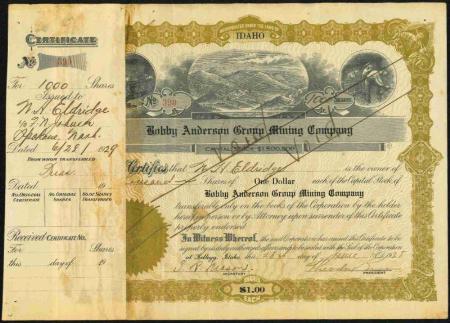 CERTIFICATE
No 399
For 1000 Shares
Issued to
W. H. Eldridge
Spokane, Wash.
Dated 6/28/1929
FROM WHOM TRANSFERRED
Dated 19
NO. ORIGINAL CERTIFICATE
NO. ORIGINAL SHARES
NO. OF SHARES TRANSFERRED
Received CERTIFICATE No.
For Shares
this day of 19
INCORPORATED UNDER THE LAWS OF
IDAHO
No 399
SHARES
Bobby Anderson Group Mining Company
CAPITAL STOCK $1,500,000
This Certifies that W H Eldridge is the owner of
Thousand Shares of One Dollar each of the Capital Stock of
Bobby Anderson Group Mining Company
transferable only on the books of the Corporation by the holder
hereof in person or by Attorney upon surrender of this Certificate
properly endorsed
In Witness Whereof, the said Corporation has caused this Certificate to be
signed by its duly authorized officers and to be sealed with the Seal of the Corporation
at Kellogg, Idaho, this 28th day of June
SECRETARY
PRESIDENT
SHARES
$1.00
EACH